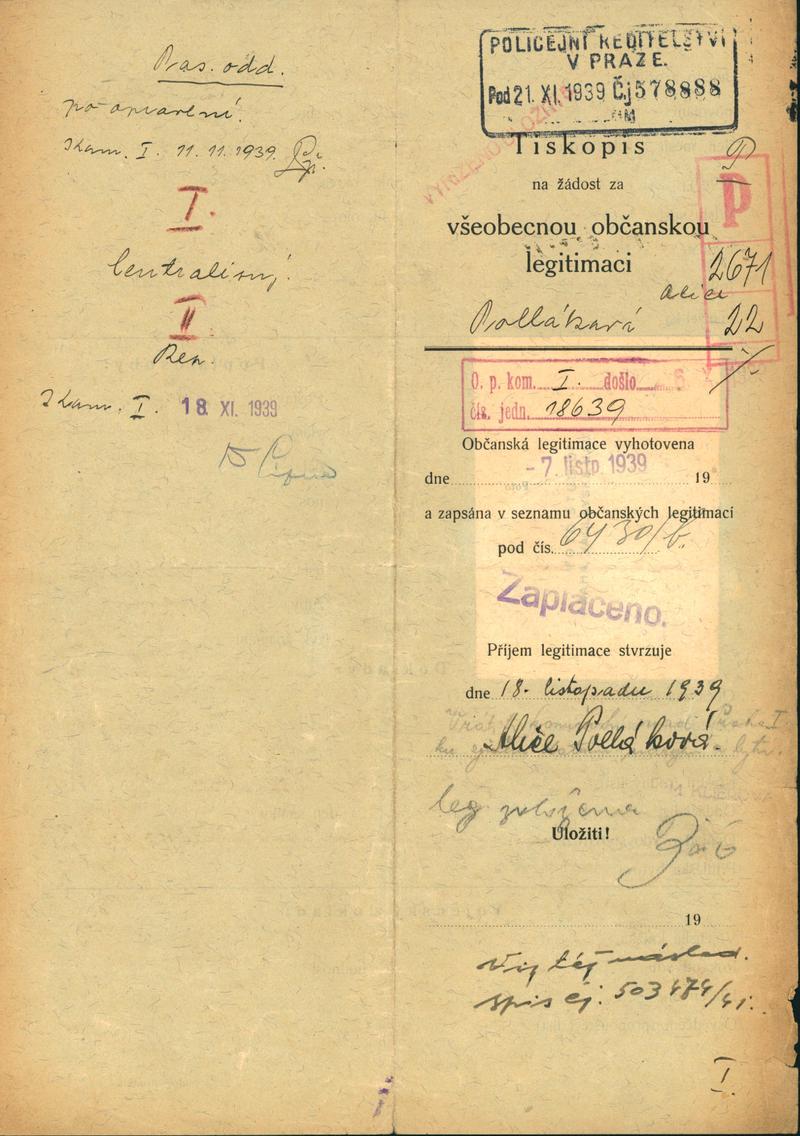 Pas. odd.
po opatření.
I. 11. 11. 1939.
I.
II
Rep.
I. 18 XI. 1939
POLICEJNÍ ŘEDITELSTVÍ
V PRAZE.
Pod 21. XI. 1939 Čj 578888
Tiskopis
na žádost za
všeobecnou občanskou
legitimaci
P
2671
22
Alice
Polláková
O. p. kom. I. došlo
čís. jedn. 18639
Občanská legitimace vyhotovena
- 7. listp 1939
dne 19
a zapsána v seznamu občanských legitimací
pod čís. 6430/b.
Zaplaceno.
Příjem legitimace stvrzuje
dne 18. listopadu 1939
Alice Polláková.
leg
Uložiti!
19
spis čj. 503474/41.
I.